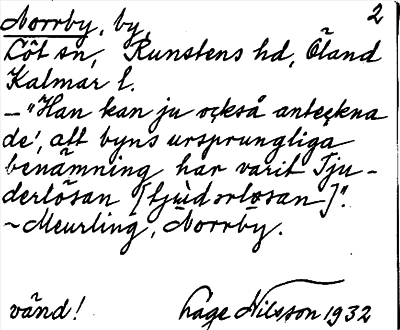 Norrby, by, 2
Löt sn, Runstens hd, Öland
Kalmar l.
– "Han kan ju också anteckna
de', att byns ursprungliga
benämning har varit Tju-
derlösan [tjùdərlosan]".
~ Meurling, Norrby.
vänd! Låge Nilsson 1932